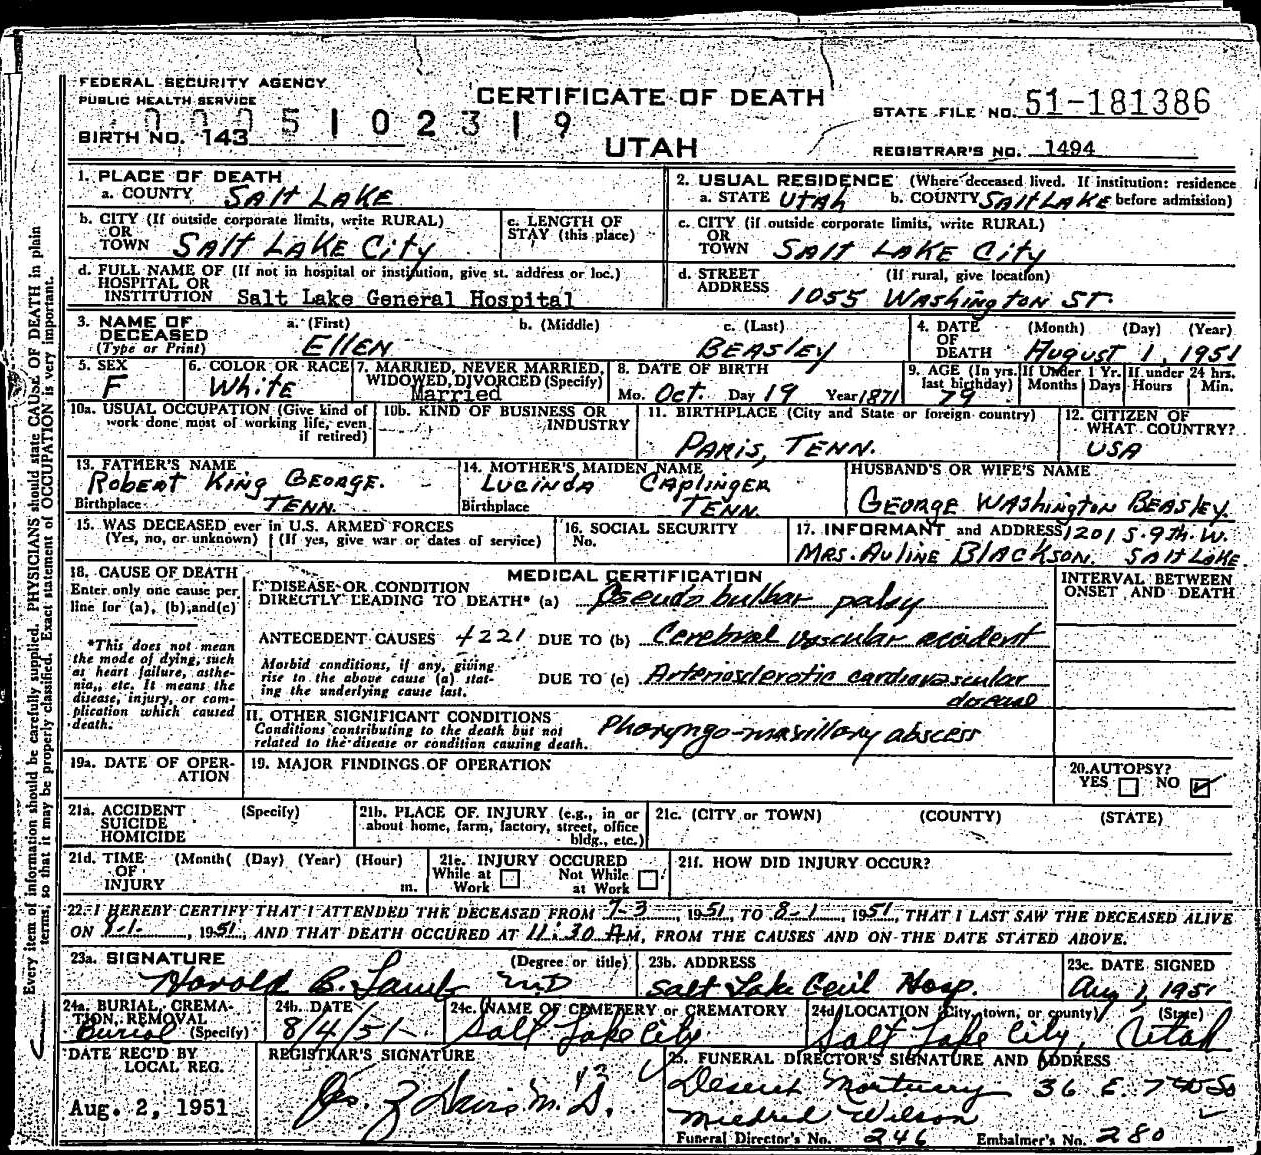 FEDERAL SECURITY AGENCY
PUBLIC HEALTH SERVICE
CERTIFICATE OF DEATH
STATE FILE NO. 51-181386
0005102319
BIRTH NO. 143
UTAH
REGISTRAR'S NO. 1494
Every item of information should be carefully supplied. PHYSICIANS should state CAUSE OF DEATH in plain
terms, so that it may be properly classified. Exact statement of OCCUPATION is very important.
1. PLACE OF DEATH
a. COUNTY SALT LAKE
2. USUAL RESIDENCE (Where deceased lived. If institution: residence
a. STATE UTAH b. COUNTY SALT LAKE before admission)
b. CITY (If outside corporate limits, write RURAL)
OR
TOWN SALT LAKE CITY
c. LENGTH OF
STAY (this place)
c. CITY (if outside corporate limits, write RURAL)
OR
TOWN SALT LAKE CITY
d. FULL NAME OF (If not in hospital or institution, give st. address or loc.)
HOSPITAL OR
INSTITUTION Salt Lake General Hospital
d. STREET (If rural, give location)
ADDRESS 1055 WASHINGTON ST.
3. NAME OF DECEASED
(Type or Print)
a. (First) b. (Middle) c. (Last)
ELLEN BEASLEY
4. DATE OF DEATH (Month) (Day) (Year)
AUGUST 1, 1951
5. SEX
F
6. COLOR OR RACE
White
7. MARRIED, NEVER MARRIED,
WIDOWED, DIVORCED (Specify)
Married
8. DATE OF BIRTH
Mo. Oct. Day 19 Year 1871
9. AGE (In yrs. last birthday)
79
If Under 1 Yr.
Months Days
If under 24 hrs.
Hours Min.
10a. USUAL OCCUPATION (Give kind of
work done most of working life, even
if retired)
10b. KIND OF BUSINESS OR
INDUSTRY
11. BIRTHPLACE (City and State or foreign country)
PARIS, TENN.
12. CITIZEN OF
WHAT COUNTRY?
USA
13. FATHER'S NAME
ROBERT KING GEORGE.
Birthplace TENN.
14. MOTHER'S MAIDEN NAME
LUCINDA CAPLINGER
Birthplace TENN.
HUSBAND'S OR WIFE'S NAME
GEORGE WASHINGTON BEASLEY.
15. WAS DECEASED ever in U.S. ARMED FORCES
(Yes, no, or unknown) (If yes, give war or dates of service)
16. SOCIAL SECURITY
No.
17. INFORMANT and ADDRESS 1201 S. 9TH. W.
MRS. AULINE BLACKSON. SALT LAKE
18. CAUSE OF DEATH
Enter only one cause per
line for (a), (b), and (c)
*This does not mean
the mode of dying, such
as heart failure, asthe-
nia, etc. It means the
disease, injury, or com-
plication which caused
death.
MEDICAL CERTIFICATION
INTERVAL BETWEEN
ONSET AND DEATH
I. DISEASE OR CONDITION
DIRECTLY LEADING TO DEATH* (a) Pseudo bulbar palsy
ANTECEDENT CAUSES 4221 DUE TO (b) Cerebral vascular accident
Morbid conditions, if any, giving
rise to the above cause (a) stat-
ing the underlying cause last.
DUE TO (c) Arteriosclerotic cardiovascular
disease
II. OTHER SIGNIFICANT CONDITIONS
Conditions contributing to the death but not
related to the disease or condition causing death.
Pharyngo-maxillary abscess
19a. DATE OF OPER-
ATION
19. MAJOR FINDINGS OF OPERATION
20. AUTOPSY?
YES NO
21a. ACCIDENT (Specify)
SUICIDE
HOMICIDE
21b. PLACE OF INJURY (e.g., in or
about home, farm, factory, street, office
bldg., etc.)
21c. (CITY or TOWN) (COUNTY) (STATE)
21d. TIME (Month( (Day) (Year) (Hour)
OF
INJURY m.
21e. INJURY OCCURED
While at Work Not While at Work
21f. HOW DID INJURY OCCUR?
22. I HEREBY CERTIFY THAT I ATTENDED THE DECEASED FROM 7-3, 1951, TO 8-1, 1951, THAT I LAST SAW THE DECEASED ALIVE
ON 8-1, 1951, AND THAT DEATH OCCURED AT 11:30 AM, FROM THE CAUSES AND ON THE DATE STATED ABOVE.
23a. SIGNATURE (Degree or title)
Harold E. Lamb M.D
23b. ADDRESS
Salt Lake Genl Hosp.
23c. DATE SIGNED
Aug 1, 1951
24a. BURIAL, CREMA-
TION, REMOVAL
Burial (Specify)
24b. DATE
8/4/51
24c. NAME OF CEMETERY or CREMATORY
Salt Lake City
24d LOCATION (City, town, or county) (State)
Salt Lake City, Utah
DATE REC'D BY
LOCAL REG.
Aug. 2, 1951
REGISTRAR'S SIGNATURE
M.D.
25. FUNERAL DIRECTOR'S SIGNATURE AND ADDRESS
Deseret Mortuary 36 E. 7th So
Mildred Wilson
Funeral Director's No. 246 Embalmer's No. 280